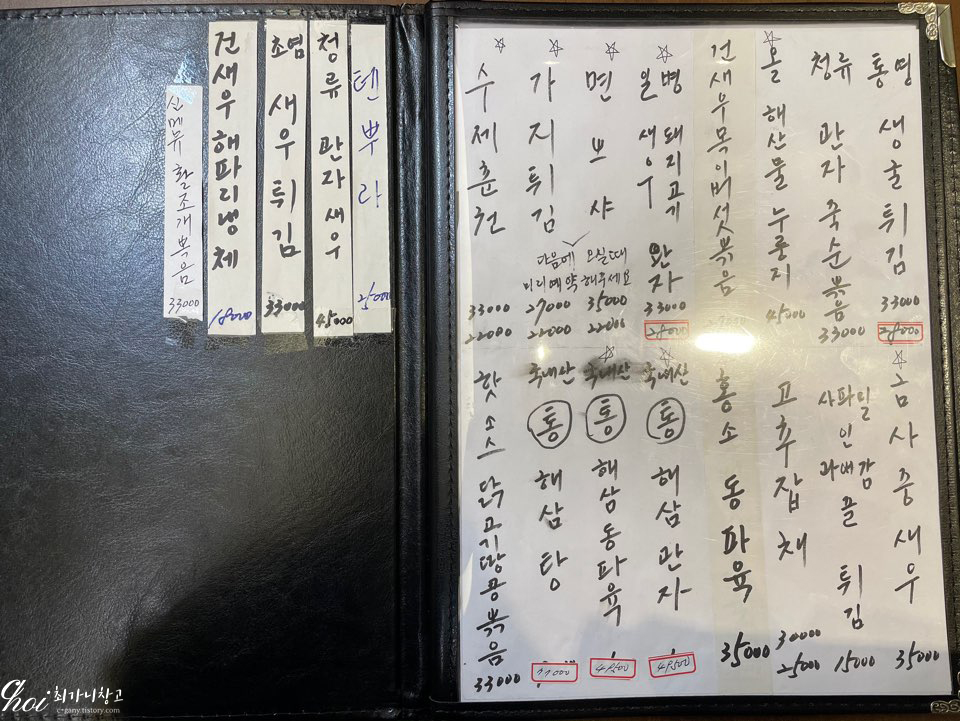 텐뿌라 25000
청류 관자 새우 45000
초염 새우튀김 33000
건새우해파리냉체 18000
신메뉴 활조개볶음 33000
통영 생굴튀김 33000 28000
청류 관자죽순볶음 33000
☆ 올 해산물누룽지 45000
건새우목이버섯볶음
☆ 일병 새우 돼지고기 완자 33000 28000
☆ 면뽀샤 35000 22000
☆ 가지튀김 27000 22000
다음에 오실때
미리예약 해주세요
☆ 수제춘권 33000 22000
☆ 금사중새우 35000
사파밀 인 과배감 끌 튀김 15000
고추잡채 30000 25000
홍소 동파육 35000
☆ 국내산 통 해삼관자 49500
☆ 국내산 통 해삼동파육 49500
국내산 통 해삼탕
핫소스 닭고기땅콩볶음 33000
choi 최가니창고
c-gany.tistory.com